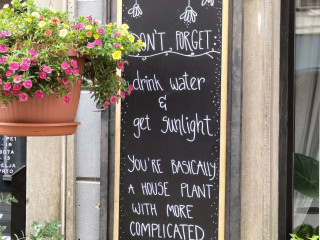 DON'T FORGET
drink water
&
get sunlight.
YOU'RE BASICALLY
A HOUSE PLANT
WITH MORE
COMPLICATED